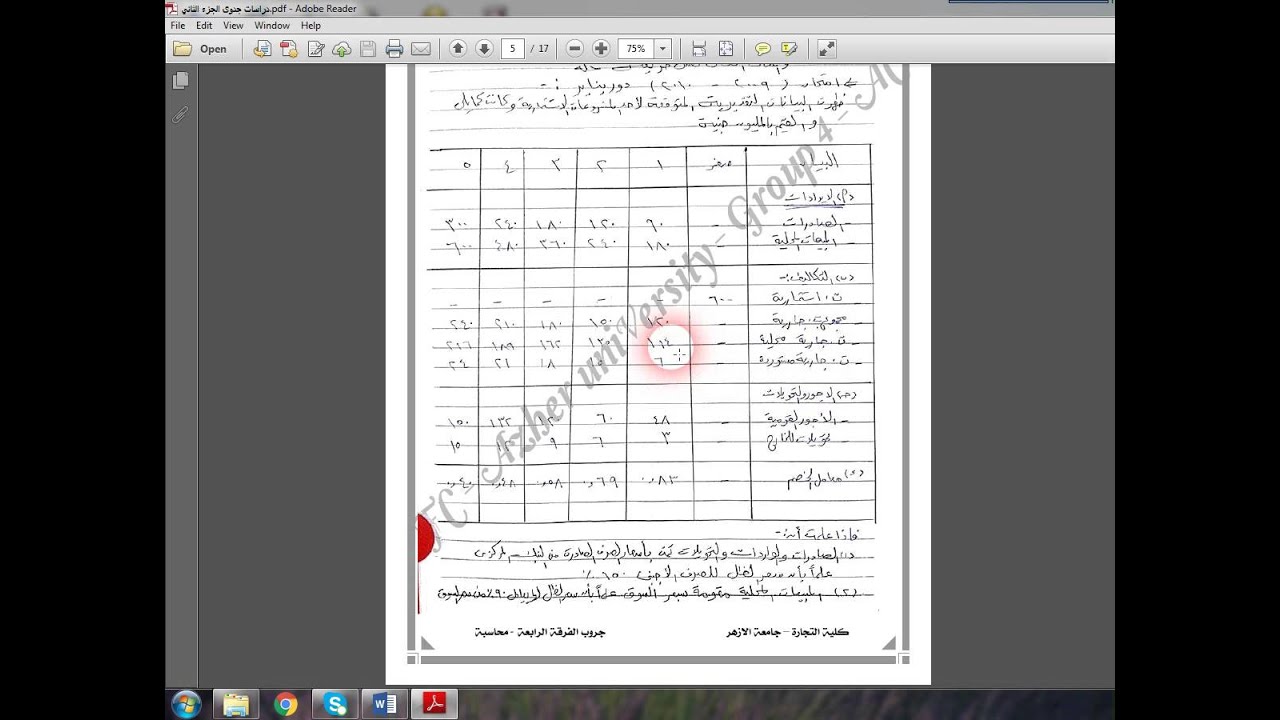 دراسات جدوى الجزء الثاني.pdf - Adobe Reader
File Edit View Window Help
Open 5 / 17 75%
امتحان (٢٠٠٩ - ٢٠١٠) دور يناير :-
و القيم بالمليون جنيه
البيان صفر ١ ٢ ٣ ٤ ٥
الايرادات
- الصادرات - ٦٠ ١٢٠ ١٨٠ ٢٤٠ ٣٠٠
- المبيعات المحلية - ١٨٠ ٢٤٠ ٣٦٠ ٤٨٠ ٦٠٠
(ب) التكاليف:-
- ت. استثمارية ٦٠٠ - - - - -
جارية - ١٢٠ ١٥٠ ١٨٠ ٢١٠ ٢٤٠
- ت. جارية محلية - ١١٤ ١٦٢ ١٨٩ ٢١٦
- ت. جارية مستوردة - ٦ ١٨ ٢١ ٢٤
(ج) الاجور والتحويلات
- الأجور القومية - ٤٨ ٦٠ ١٣٢ ١٥٠
- تحويلات للخارج - ٣ ٦ ٩ ١٢ ١٥
(د) معامل الخصم - ٠,٨٣ ٠,٦٩ ٠,٥٨ ٠,٤٨ ٠,٤٠
فإذا علمت أن:-
(١) الصادرات والواردات والتحويلات بأسعار الصرف الصادرة من البنك المركزى
علماً بأن سعر الظل للصرف الأجنبى ١٥٠ %
(٢) المبيعات المحلية مقومة بسعر السوق علماً بأن سعر الظل للمبيعات ٩٠% من سعر السوق
FC - Azher uniVersity - Group 4 - AC
كلية التجارة – جامعة الازهر جروب الفرقة الرابعة - محاسبة